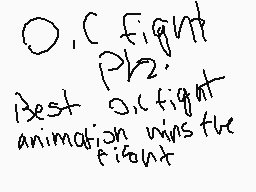 O.C fight
Ph2.
Best O.C fight
animation wins the
fight